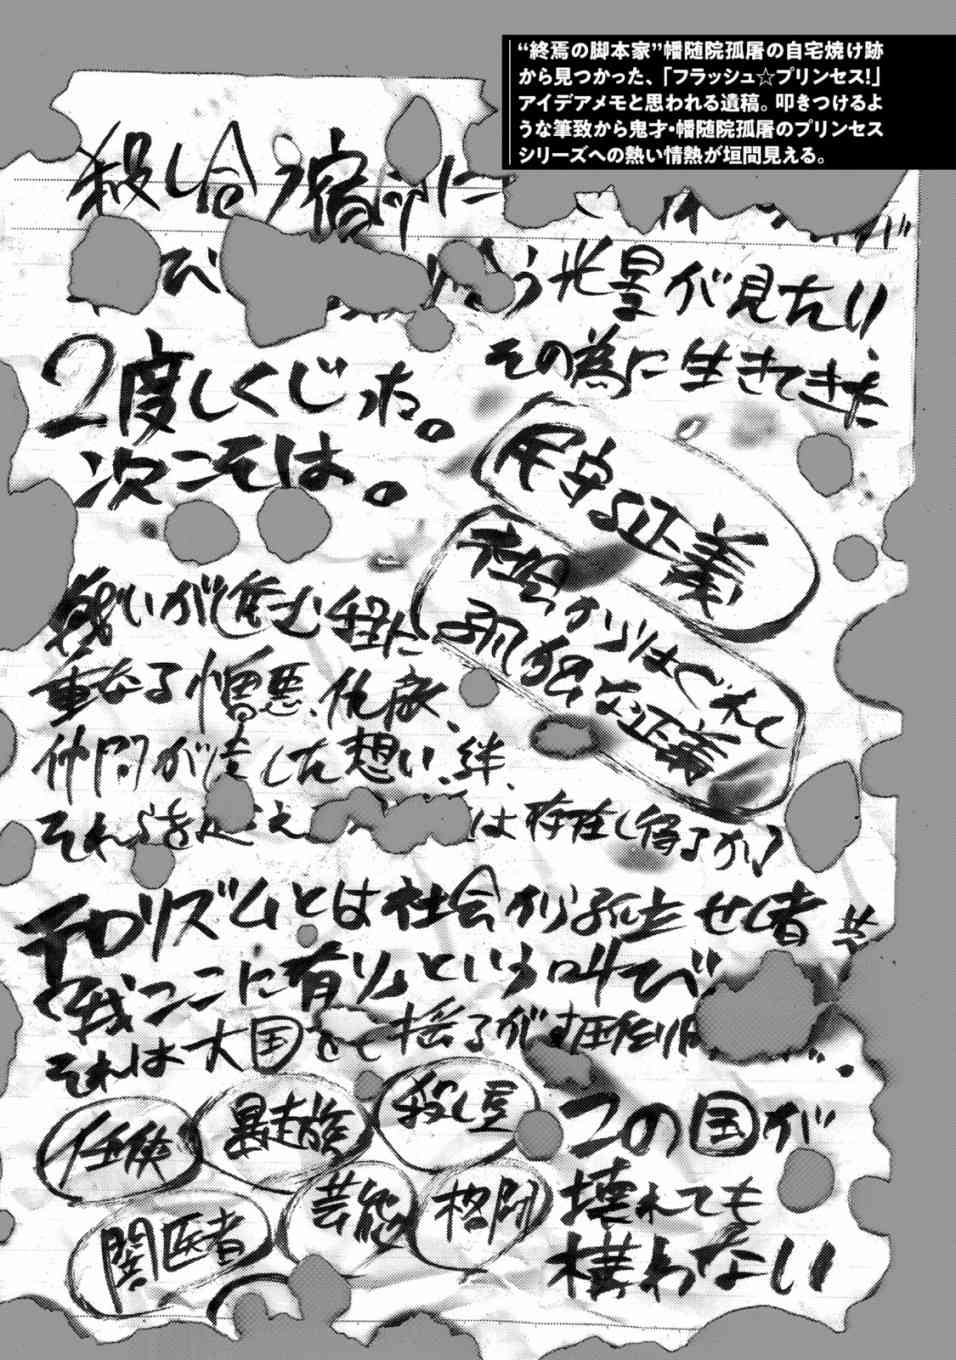 “終焉の脚本家”幡随院孤屠の自宅焼け跡
から見つかった、「フラッシュ☆プリンセス!」
アイデアメモと思われる遺稿。叩きつけるよ
うな筆致から鬼才・幡随院孤屠のプリンセス
シリーズへの熱い情熱が垣間見える。
殺し合う宿命に
び う光景が見たい
その為に生きてきた
2度しくじった。
次こそは。
守る正義
社会からはぐれし
孤独な正義
戦いが進む程に
重なる憎悪、仇敵、
仲間が遺した想い、絆、
それらを超え は存在し得るか?
テロリズムとは社会から孤立せし者共
「我ここに有り」という叫び
それは大国をも揺るがす圧倒
任侠
暴走族
殺し屋
闇医者
芸能
格闘
この国が
壊れても
構わない